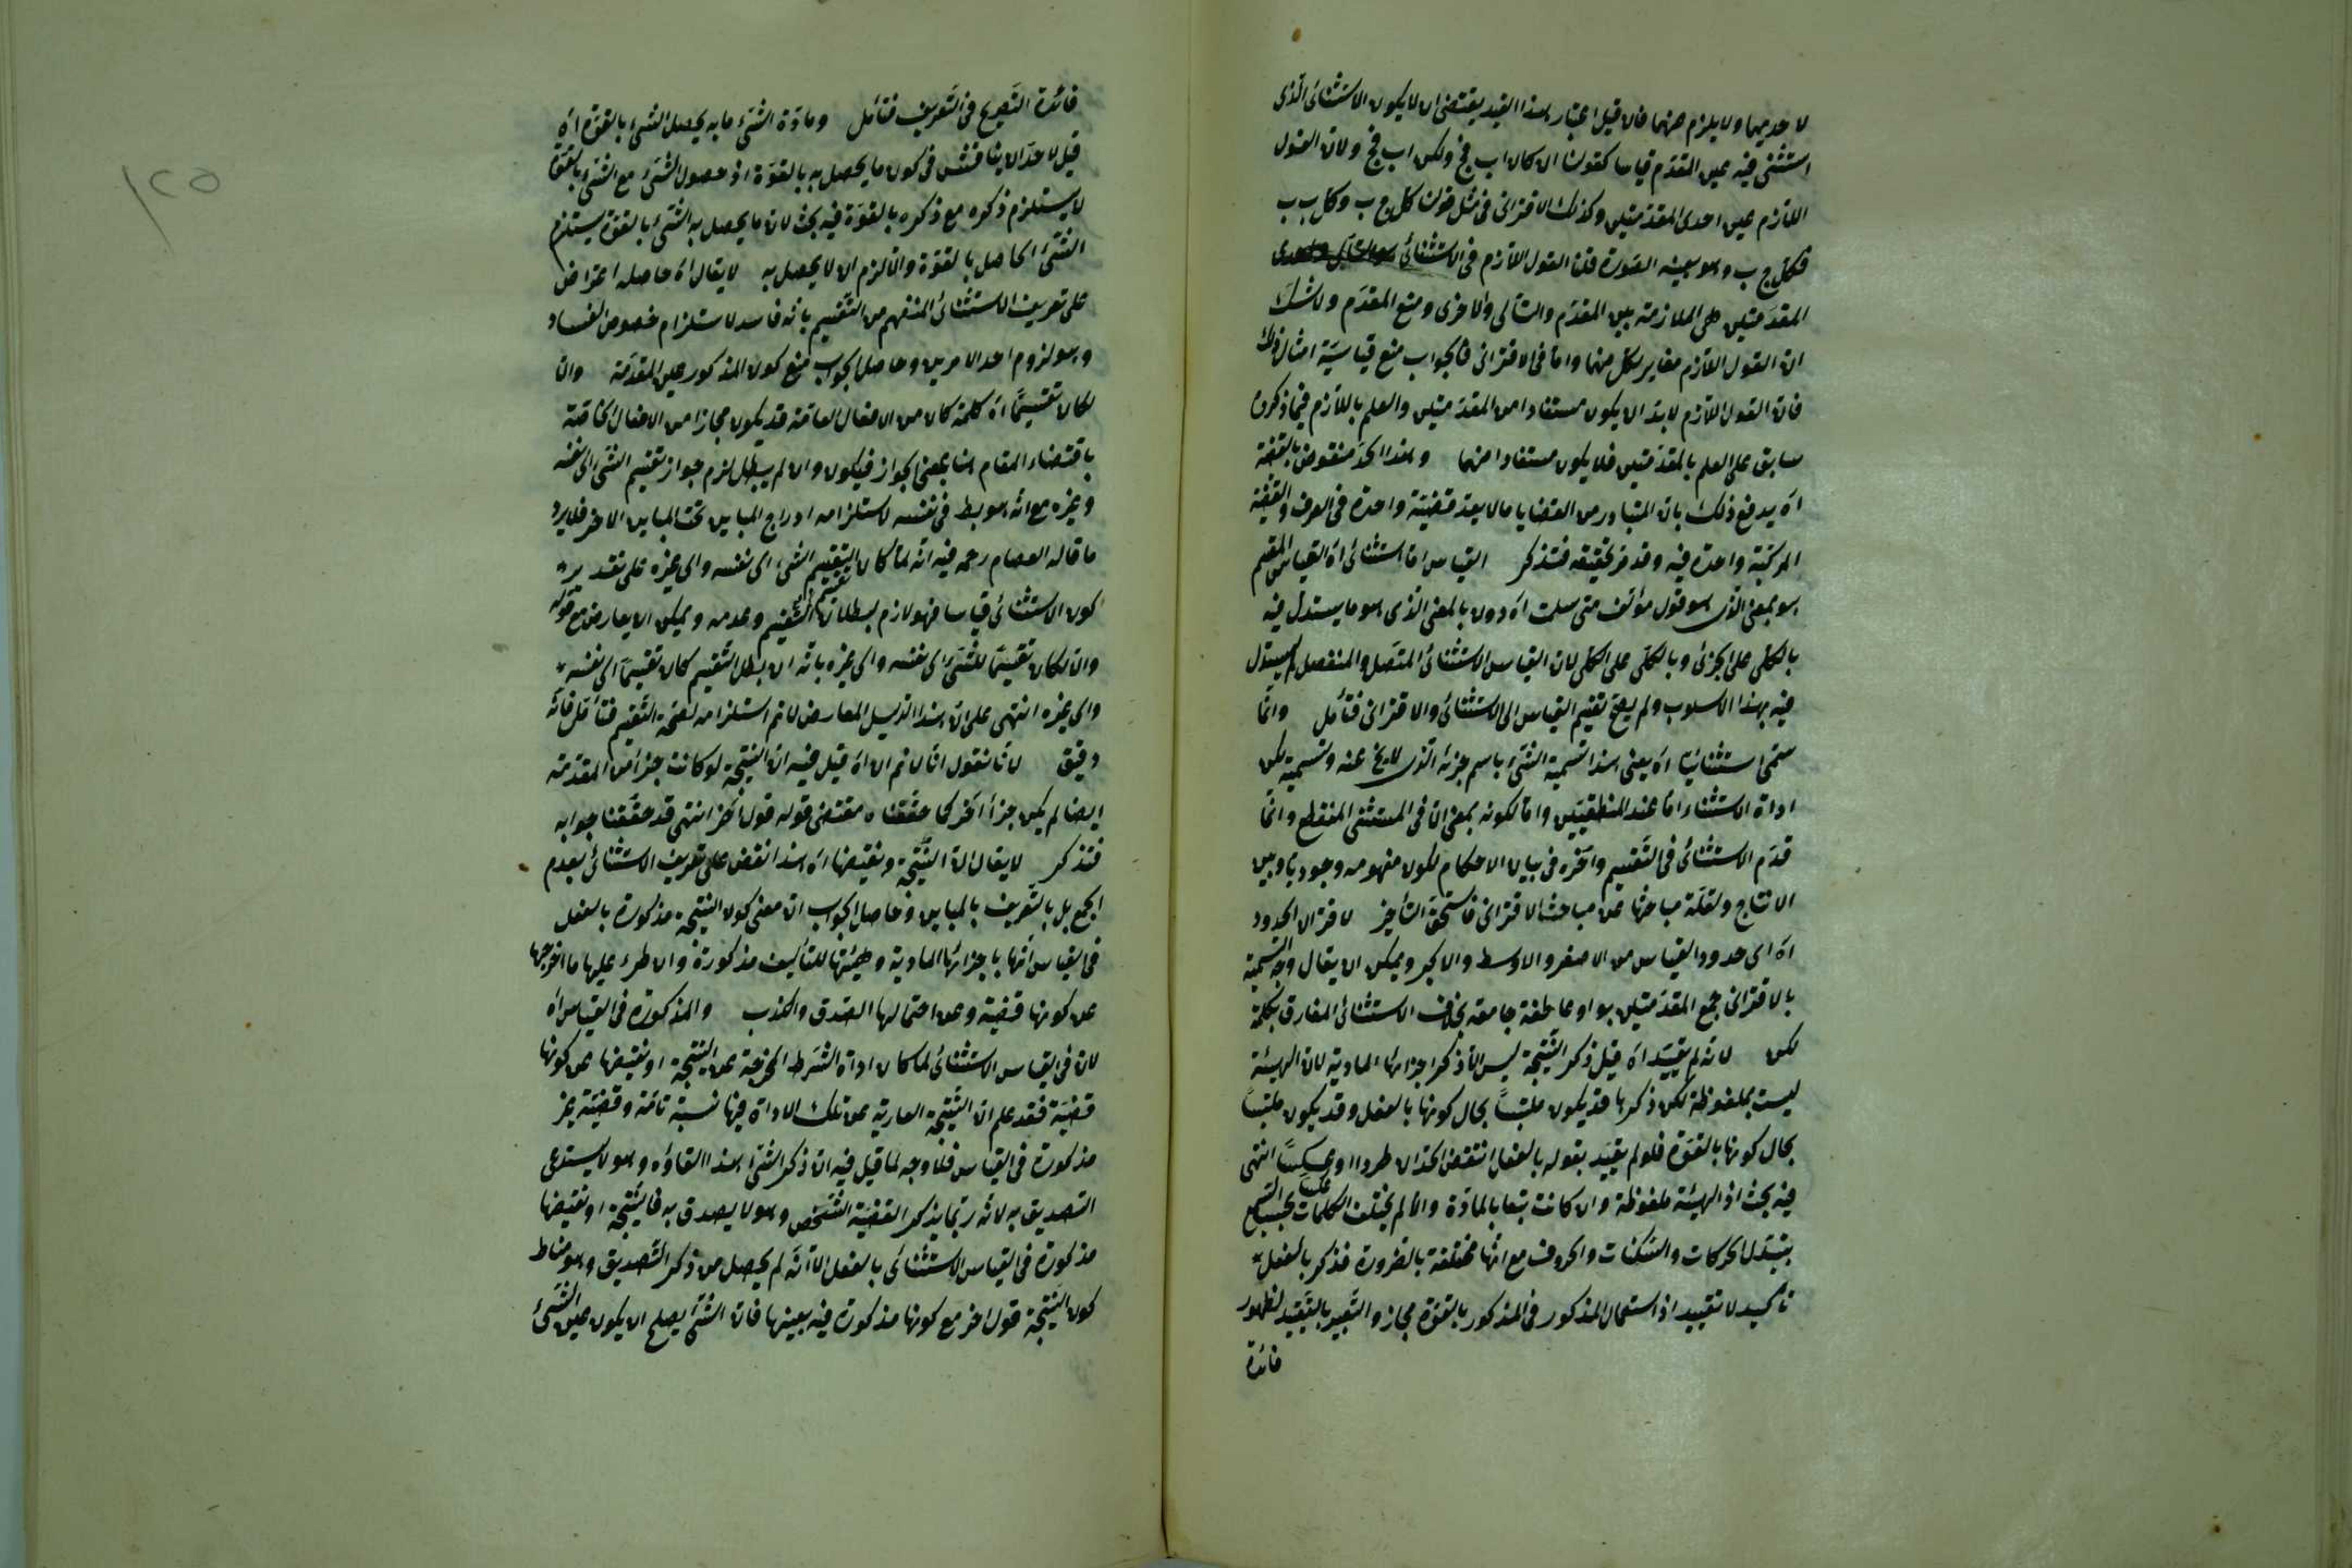 لاحديهما ولا يلزم منهما فان قيل اعتبار هذا القيد يقتضى ان لا يكون الاستثنائى الذى
استثنى فيه عين المقدم قياسا كقولنا ان كان اب فج ولكن اب فج ولان القول
اللازم عين احدى المقدمتين وكذلك الاقترانى فى مثل قولنا كل ج ب وكل ب ب
فكل ج ب وهو بعينه الصورة قلنا القول اللازم فى الاستثنائى
المقدمتين هى الملازمة بين المقدم والتالى والاخرى ومنع المقدم ولا شك
ان القول اللازم مغاير لكل منهما واما فى الاقترانى فالجواب منع قياسية امثال ذلك
فان القول اللازم لابد ان يكون مستفادا من المقدمتين والعلم باللازم فيما ذكروا
سابق على العلم بالمقدمتين فلا يكون مستفادا منهما وهذا الحد منقوض بالقضية
اه يدفع ذلك بان المتبادر من القضايا مالا يعد قضية واحدة فى العرف والقضية
المركبة واحدة فيه وقد مر تحقيقه فتذكر القياس اما استثنائى اه القياس المقسم
هو بمعنى الذى هو قول مؤلف متى سلمت اه دون بالمعنى الذى هو ما يستدل فيه
بالكلى على الجزئى وبالكلى على الكلى لان القياس الاستثنائى المتصل والمنفصل لم يستدل
فيه بهذا الاسلوب ولم يصح تقسيم القياس الى الاستثنائى والاقترانى فتأمل وانما
سمى استثنائيا اه يعنى هذا تسمية الشئ باسم جزئه الذى عنه وتسمية لكن
اداة الاستثناء اما عند المنطقيين واما لكونه بمعنى الا فى المستثنى المنقطع وانما
قدم الاستثنائى فى التقسيم واخره فى بيان الاحكام لكون مفهومه وجوديا وبين
الانتاج ولقلة مباحثها عن مباحث الاقترانى فاستحق التأخير لاقتران الحدود
اه اى حدود القياس من الاصغر والاوسط والاكبر ويمكن ان يقال وجه التسمية
بالاقترانى جمع المقدمتين بواو عاطفة جامعة بخلاف الاستثنائى المفارق بكلمة
لكن لانه لم يقيد اه قيل ذكر النتيجة ليس الا ذكر اجزائها المادية لان الهيئة
ليست بملفوظة لكن ذكرها قد يكون ملتبسا بحال كونها بالفعل وقد يكون ملتبسا
بحال كونها بالقوة فلو لم يقيد بقوله بالفعل انتقض الحدان طردا وعكسا انتهى
فيه بحث اذ الهيئة ملفوظة وان كانت تبعا بالمادة والا لم يختلف الكلمات بحسب السمع
بتبدل الحركات والسكنات والحروف مع انها مختلفة بالضرورة فذكر بالفعل
تأكيد لا تقييد اذ استعمال المذكور فى المذكور بالقوة مجاز والتعبير بالتقييد لظهور
فائدة
فائدة التصريح فى التعريف فتأمل ومادة الشئ ما به يحصل الشئ بالقوة اه
قيل لاحد ان يناقش فى كون ما يحصل به بالقوة اذ حصول الشئ مع الشئ بالقوة
لا يستلزم ذكره مع ذكره بالقوة فيه بحث لان ما يحصل به الشئ بالقوة يستلزم
الشئ الحاصل بالقوة والا لزم ان لا يحصل به لا يقال اه حاصله اعتراض
على تعريف الاستثنائى المنفهم من التقسيم بانه فاسد لاستلزام خصوص الفساد
وهو لزوم احد الامرين وحاصل الجواب منع كون المذكور عين المقدمة والا
لكان تقسيما اه كلمة كان من الافعال العامة قد يكون مجازا من الافعال الخاصة
باقتضاء المقام هنا بمعنى الجواز فيكون وان لم يبطل لزم جواز تقسيم الشئ الى نفسه
وغيره مع انه هو بط فى نفسه لاستلزامه ادراج المباين تحت المباين الاخر فلا يرد
ما قاله العصام رحمه فيه انه لما كان التقسيم الشئ الى نفسه والى غيره على تقدير
كون الاستثنائى قياسا فهو لازم لبطلان تقسيم التقسيم وعدمه ويمكن ان يعارض مع قوله
والا لكان تقسيما للشئ الى نفسه والى غيره بانه ان بطل التقسيم كان تقسيما الى نفسه
والى غيره انتهى على ان هذا الدليل المعارض لا نم استلزامه لصحة التقسيم فتأمل فانه
دقيق لانا نقول انا لا نم ان اه قيل فيه ان النتيجة لو كانت جزأ من المقدمة
ايضا لم يكن جزأ اخر كما حققناه مقتضى قوله قول آخر انتهى قد حققنا جوابه
فتذكر لا يقال ان النتيجة ونقيضها اه هذا نقض على تعريف الاستثنائى بعدم
الجمع بل بالتعريف بالمباين وحاصل الجواب ان معنى كون النتيجة مذكورة بالفعل
فى القياس انها باجزائها المادية وهيئتها للتأليف مذكورة وان طرء عليها ما اخرجها
عن كونها قضية وعن احتمالها الصدق والكذب والمذكورة فى القياس اه
لان فى القياس الاستثنائى لما كان اداة الشرط المخرجة عن النتيجة او نقيضها عن كونها
قضية فقد علم ان النتيجة العارية عن تلك الاداة فيها نسبة تامة وقضية غير
مذكورة فى القياس فلا وجه لما قيل فيه ان ذكر الشئ هذا القاؤه وهو لا يستدعى
التصديق به لانه ربما يذكر القضية الشخص وهو لا يصدق به فالنتيجة او نقيضها
مذكورة فى القياس الاستثنائى بالفعل الا انه لم يحصل من ذكر التصديق وهو مناط
كون النتيجة قول اخر مع كونها مذكورة فيه بعينها فان الشئ يصلح ان يكون عين الشئ
١٢٥